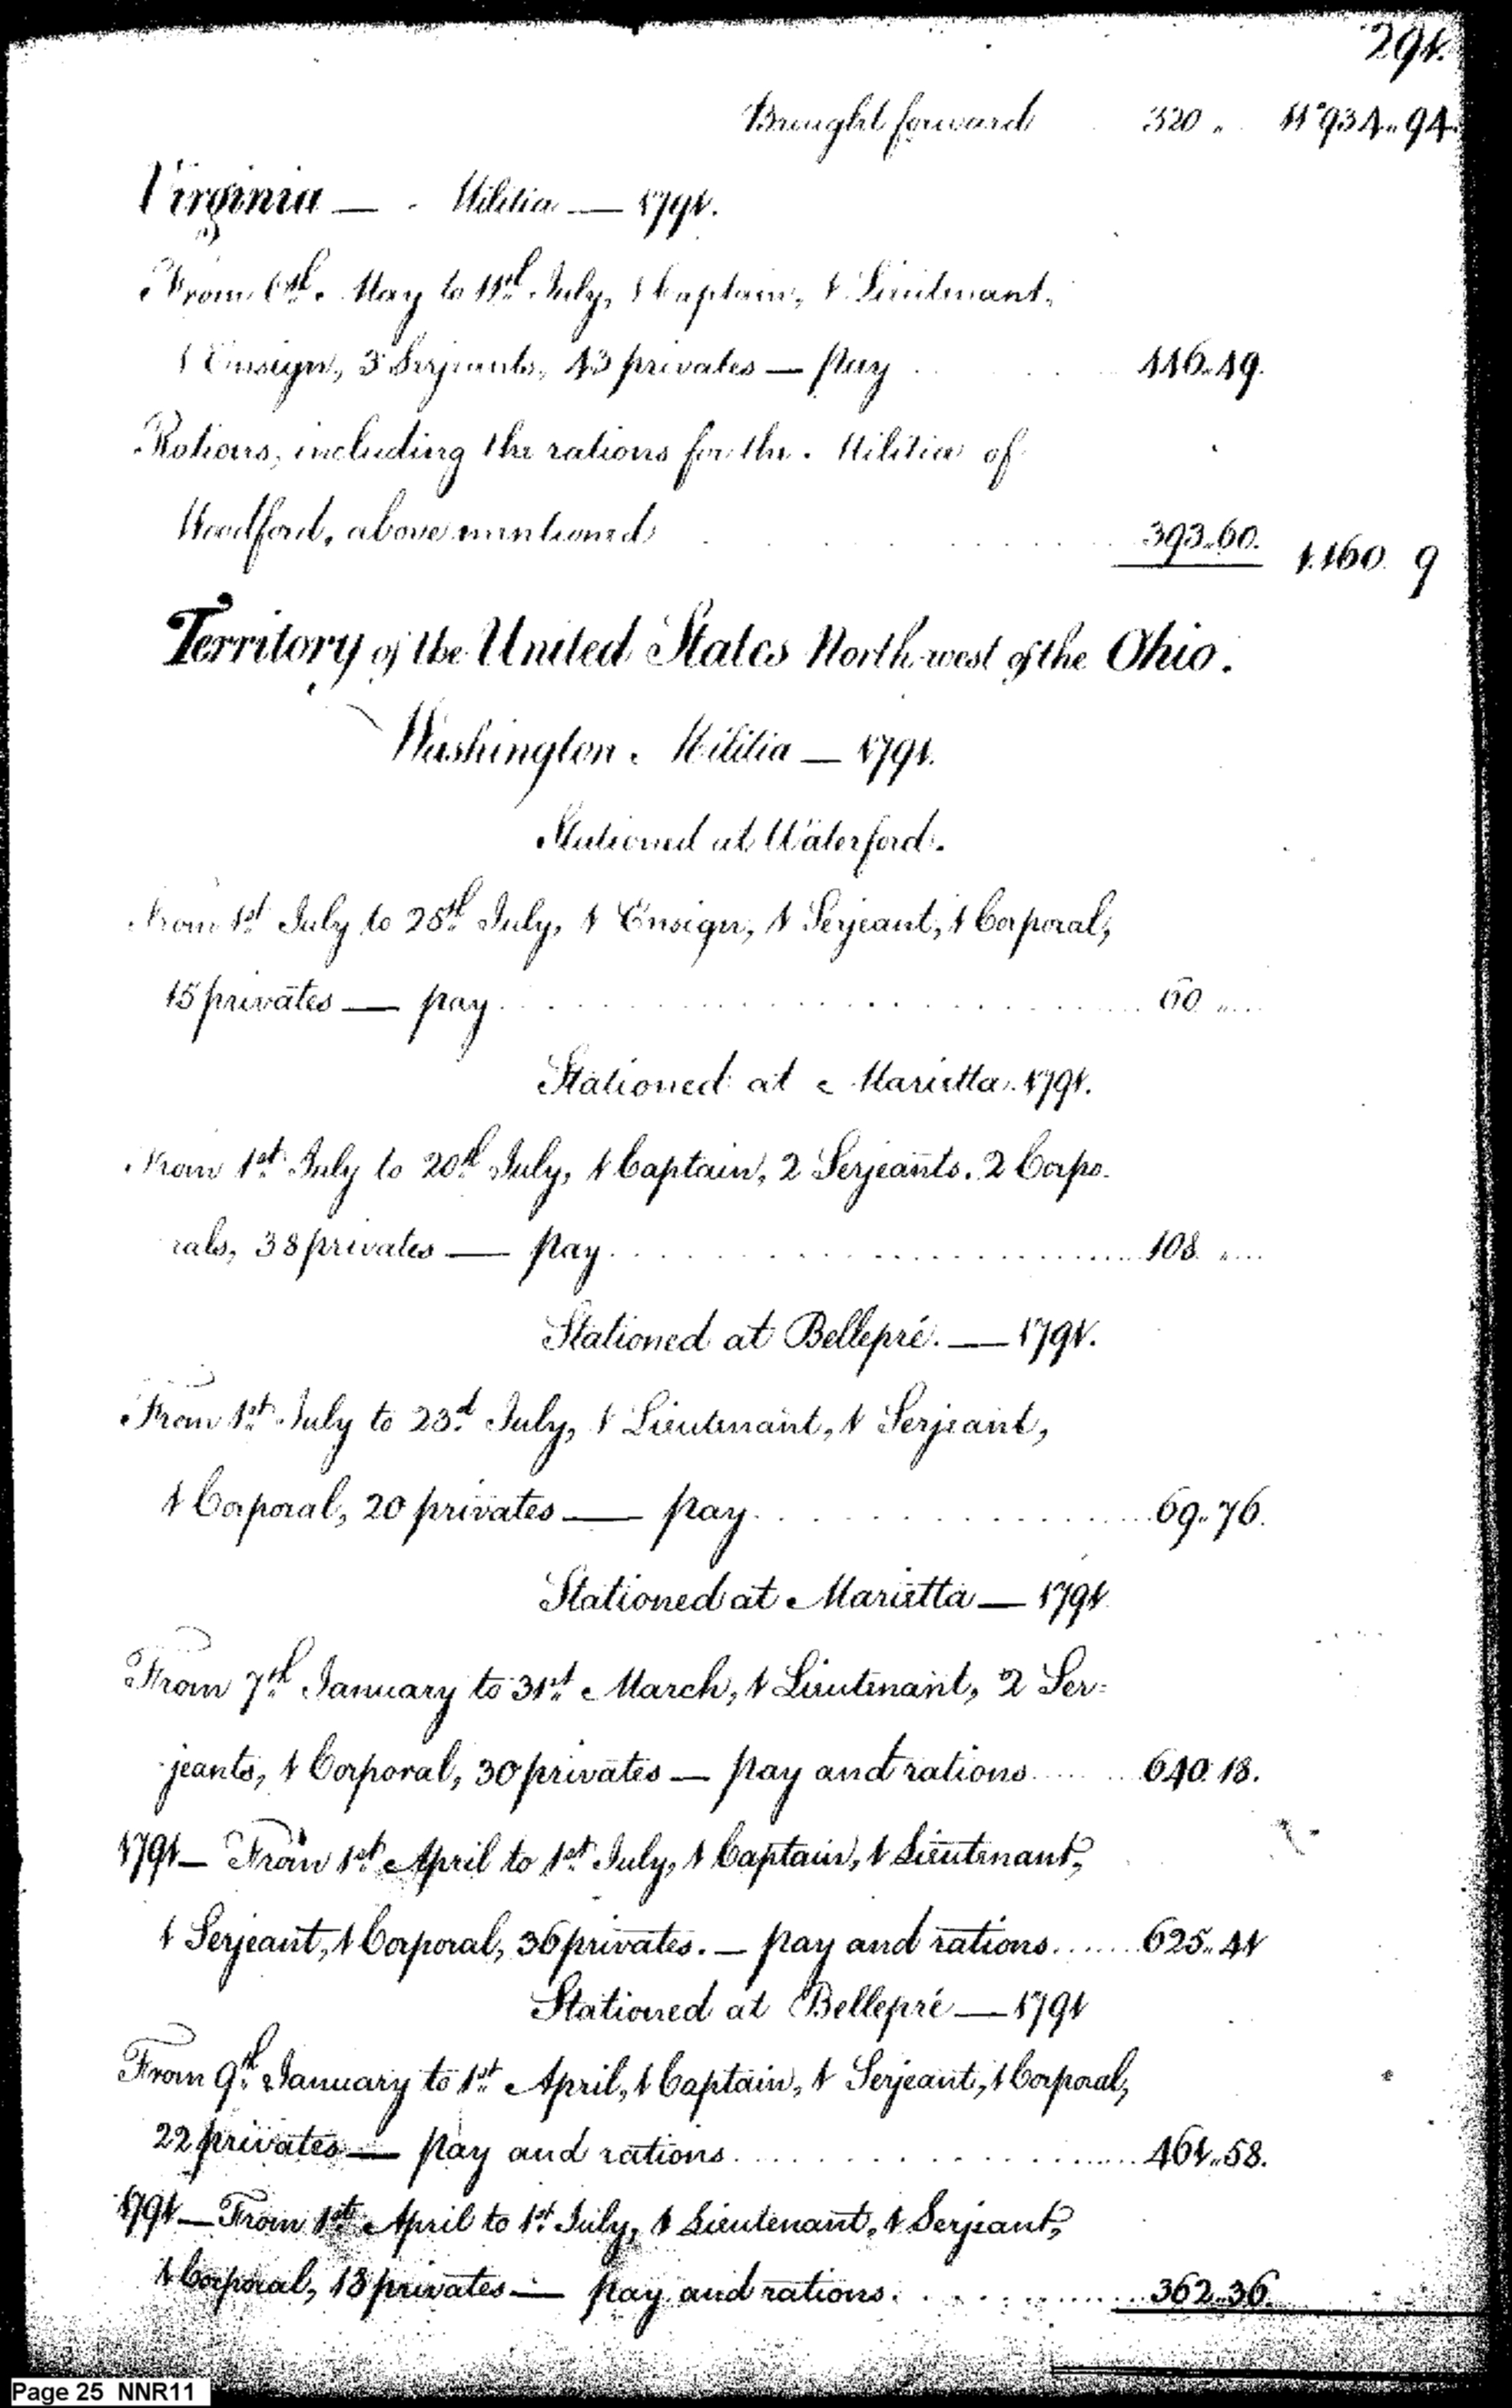 291.
Brought forward 320 " 11°934"94.
Virginia — Militia — 1791.
From 6th. May to 11th July, 1 Captain, 1 Lieutenant,
1 Ensign, 3 Serjeants, 43 privates — pay 446"49.
Rations, including the rations for the Militia of
Woodford, above mentioned 393"60. 1.160 9
Territory of the United States North-west of the Ohio.
Washington Militia — 1791.
Stationed at Waterford.
From 1st July to 28th July, 1 Ensign, 1 Serjeant, 1 Corporal,
15 privates — pay 60 "
Stationed at Marietta. 1791.
From 1st July to 20th July, 1 Captain, 2 Serjeants. 2 Corpo-
rals, 38 privates — pay 108 "
Stationed at Bellepré. — 1791.
From 1st July to 23d July, 1 Lieutenant, 1 Serjeant,
1 Corporal, 20 privates — pay 69"76.
Stationed at Marietta — 1791
From 7th January to 31st March, 1 Lieutenant, 2 Ser-
jeants, 1 Corporal, 30 privates — pay and rations 640 18.
1791 — From 1st April to 1st July, 1 Captain, 1 Lieutenant,
1 Serjeant, 1 Corporal, 36 privates. — pay and rations 625"41
Stationed at Bellepré — 1791
From 9th January to 1st April, 1 Captain, 1 Serjeant, 1 Corporal,
22 privates — pay and rations 461"58.
1791 — From 1st April to 1st July, 1 Lieutenant, 1 Serjeant,
1 Corporal, 18 privates — pay and rations. 362"36.
Page 25 NNR11